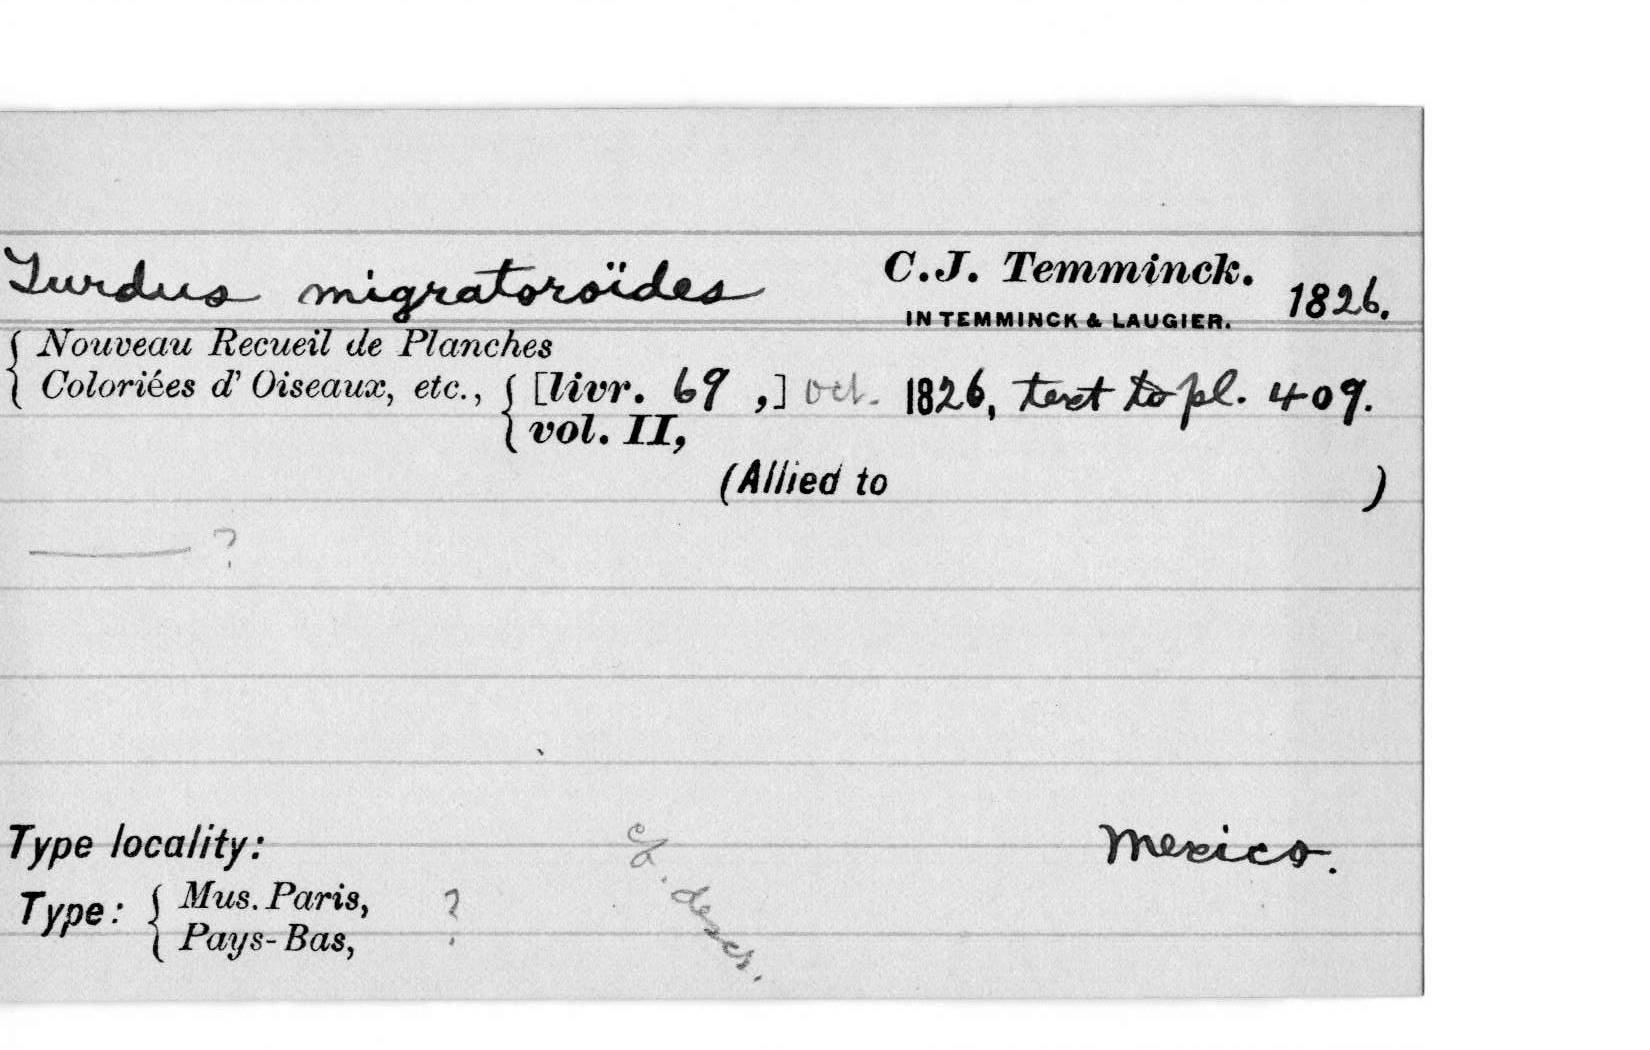 Turdus migratoroïdes C.J. Temminck. 1826.
IN TEMMINCK & LAUGIER.
{ Nouveau Recueil de Planches
Coloriées d' Oiseaux, etc., { [livr. 69 ,] oct. 1826, text to pl. 409.
vol. II,
(Allied to )
——— ?
Type locality: Mexico.
Type: { Mus. Paris, ?
Pays-Bas,
cf. descr.